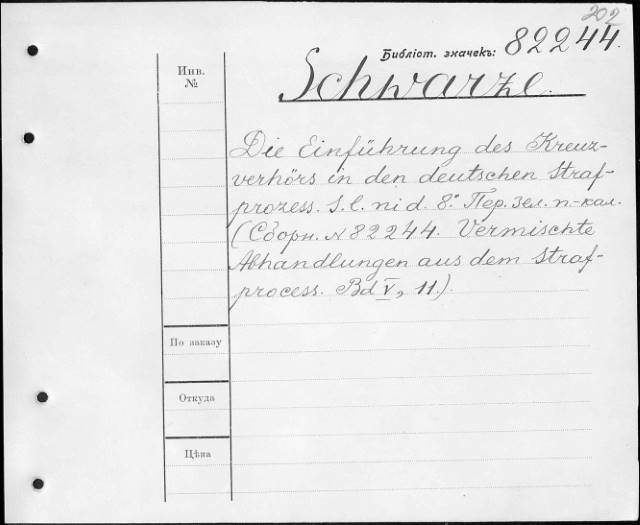 202
Библіот. значекъ: 82244.
Инв.
№
Schwarze.
Die Einführung des Kreuz-
verhörs in den deutschen Straf-
prozess. S. l. ni d. 8.° Пер. зел. п.-кал.
(Сборн. № 82244. Vermischte
Abhandlungen aus dem Straf-
process. Bd V, 11.).
По заказу
Откуда
Цѣна